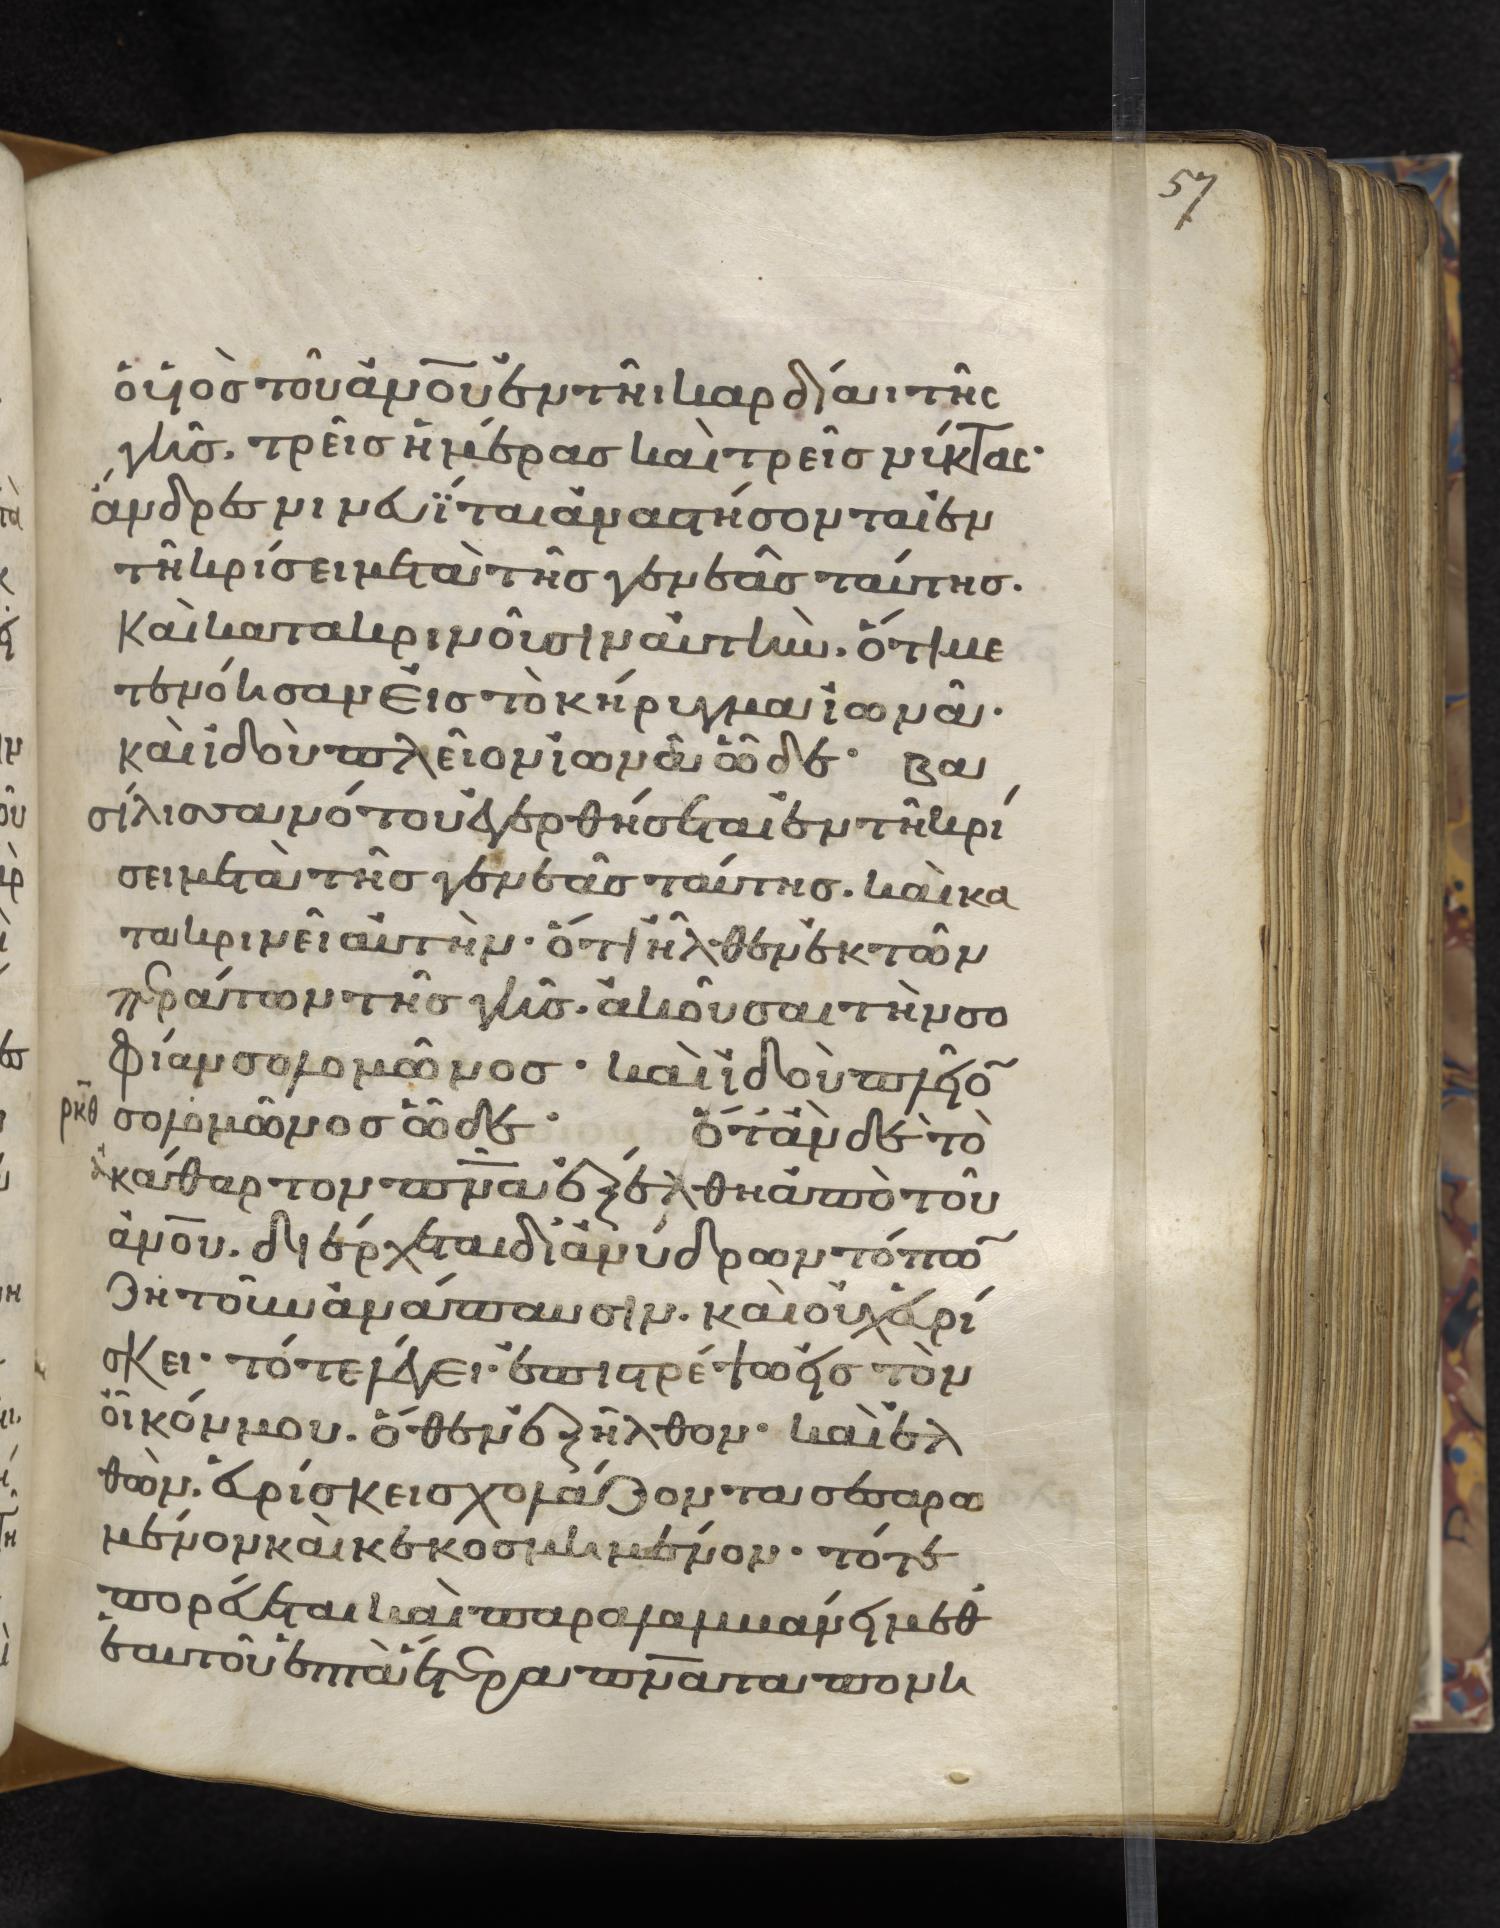 57
ὁ υἱὸσ τοῦ ἀνου ἐν τῆι καρδίαι τῆς
γῆσ. τρεῖσ ἡμέρασ καὶ τρεῖσ νύκτας·
ἄνδρεσ νινευῖται ἀναστήσονται ἐν
τῆ κρίσει μετὰ τῆσ γενεᾶσ ταύτησ.
καὶ κατακρινοῦσιν αὐτὴν. ὅτι με
τενόησαν εἰσ τὸ κήρυγμα ἰωνᾶ·
καὶ ἰδοὺ πλεῖον ἰωνᾶ ὧδε· βα
σίλισσα νότου ἐγερθήσεται ἐν τῆ κρί
σει μετὰ τῆσ γενεᾶσ ταύτησ. καὶ κα
τακρινεῖ αὐτὴν· ὅτι ἦλθεν ἐκ τῶν
περάτων τῆσ γῆσ. ἀκοῦσαι τὴν σο
φίαν σολομῶνοσ· καὶ ἰδοὺ πλεῖο
ρκθ σολομῶνοσ ὧδε· ὅταν δὲ τὸ
ἀκάθαρτον πνα ἐξέλθη ἀπὸ τοῦ
ἀνου. διέρχεται δι ἀνύδρων τόπω
ζητοῦν ἀνάπαυσιν. καὶ οὐχ εὑρί
σκει· τότε λέγει· ἐπιστρέψω εἰσ τὸν
οἶκόν μου. ὅθεν ἐξῆλθον· καὶ ἐλ
θὼν. εὑρίσκει σχολάζοντα σεσαρω
μένον καὶ κεκοσμημένον· τότε
πορεύεται καὶ παραλαμμάνει μεθ
ἑαυτοῦ ἑπτὰ ἕτερα πνατα πονη